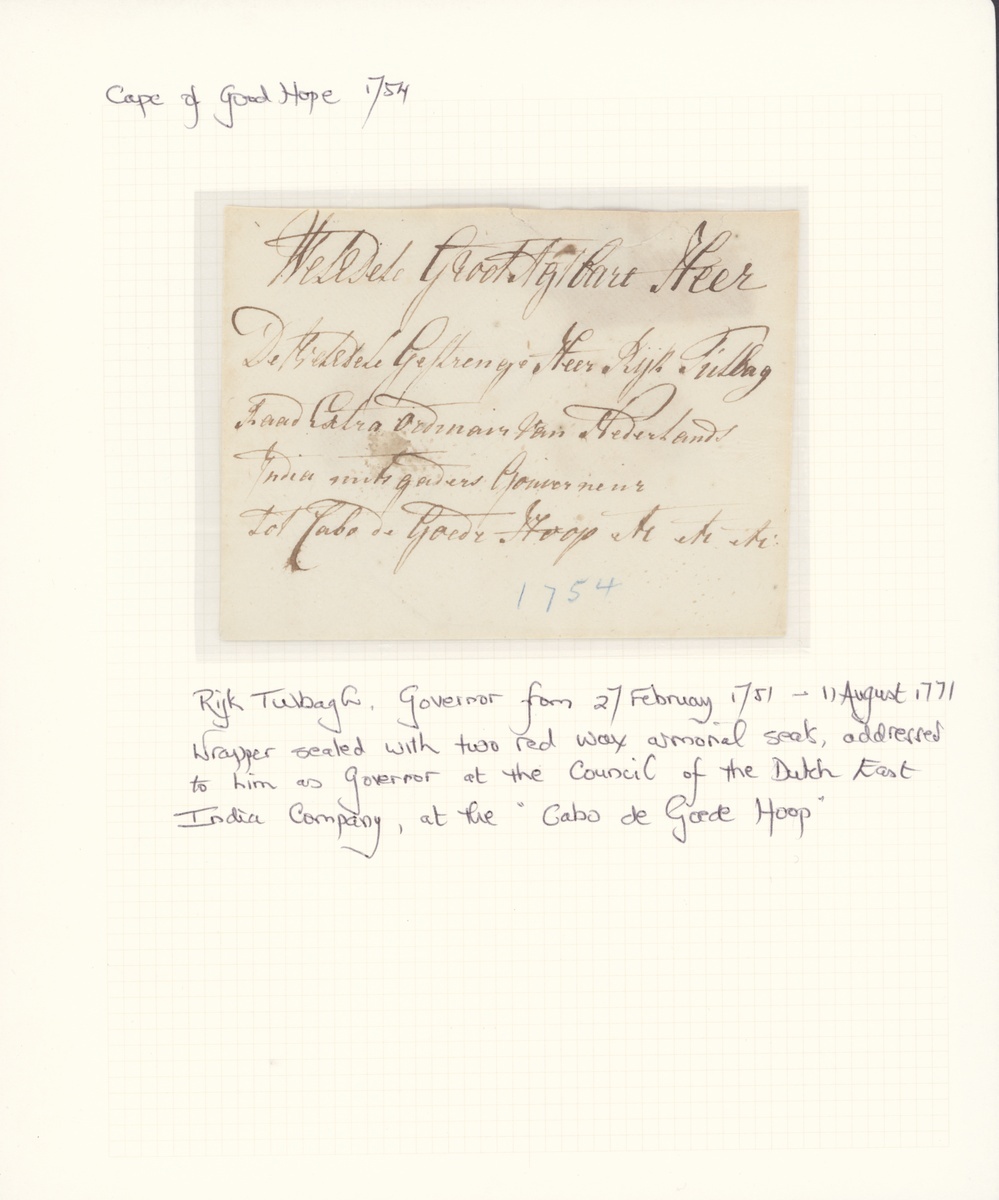 Cape of Good Hope 1754
WelEdele Groot Agtbare Heer
De WelEdele Gestrenge Heer Rijk Tulbag
Raad Extra Ordinair van Nederlands
India mitsgaders Gouverneur
tot Cabo de Goede Hoop etc etc etc:
1754
Rijk Tulbagh, Governor from 27 February 1751 - 11 August 1771
Wrapper sealed with two red wax armorial seals, addressed
to him as Governor at the Council of the Dutch East
India Company, at the "Cabo de Goede Hoop"